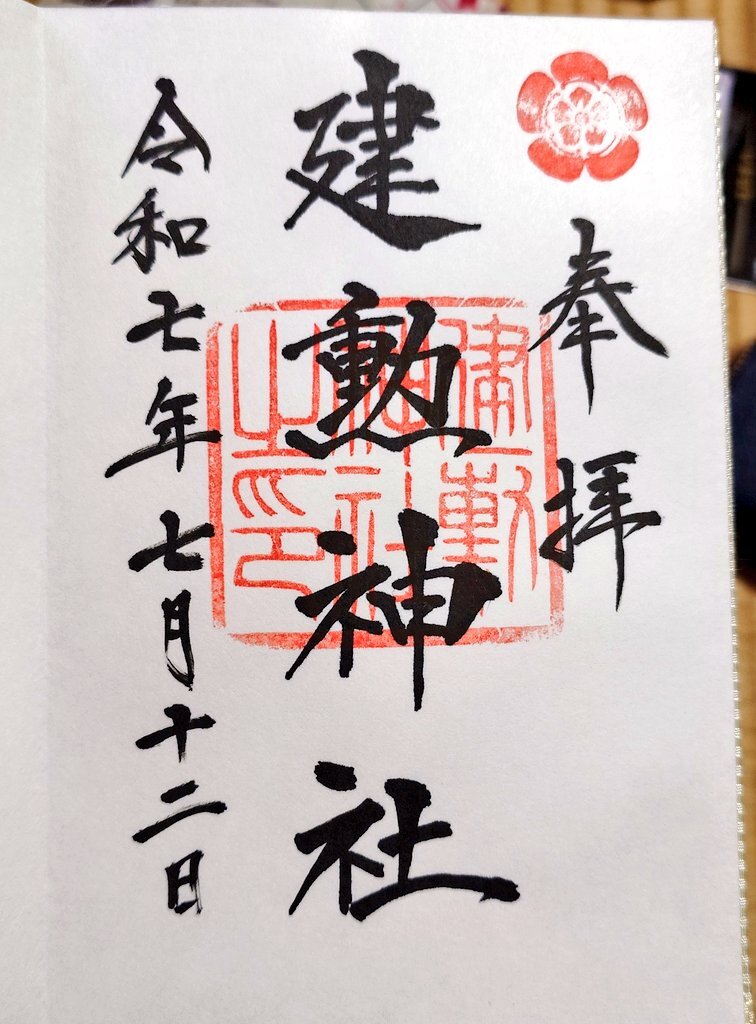 奉拝
建勲神社
建勲神社之印
令和七年七月十二日